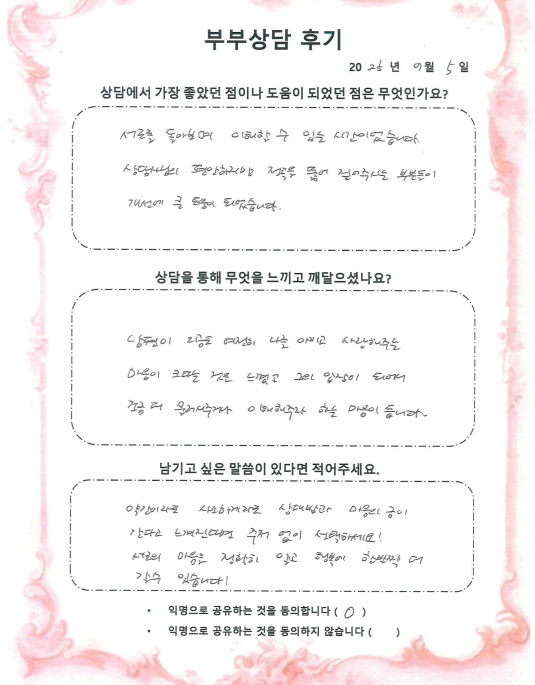 부부상담 후기
20 26 년 9월 5일
상담에서 가장 좋았던 점이나 도움이 되었던 점은 무엇인가요?
서로를 돌아보며 이해할 수 있는 시간이었습니다.
상담사님의 편안하지만 정곡을 뚫어 짚어주시는 부분들이
개선에 큰 도움이 되었습니다.
상담을 통해 무엇을 느끼고 깨달으셨나요?
남편이 지금도 여전히 나를 아끼고 사랑해주는
마음이 크다는 것을 느꼈고 그의 입장이 되어서
조금 더 이해해주자 하는 마음이 듭니다.
남기고 싶은 말씀이 있다면 적어주세요.
약간이라도 사소하게라도 상대방과 마음의 금이
간다고 느껴진다면 주저 없이 선택하세요!
서로의 마음을 정확히 알고 행복에 한발짝 더
갈수 있습니다!
• 익명으로 공유하는 것을 동의합니다 ( O )
• 익명으로 공유하는 것을 동의하지 않습니다 ( )